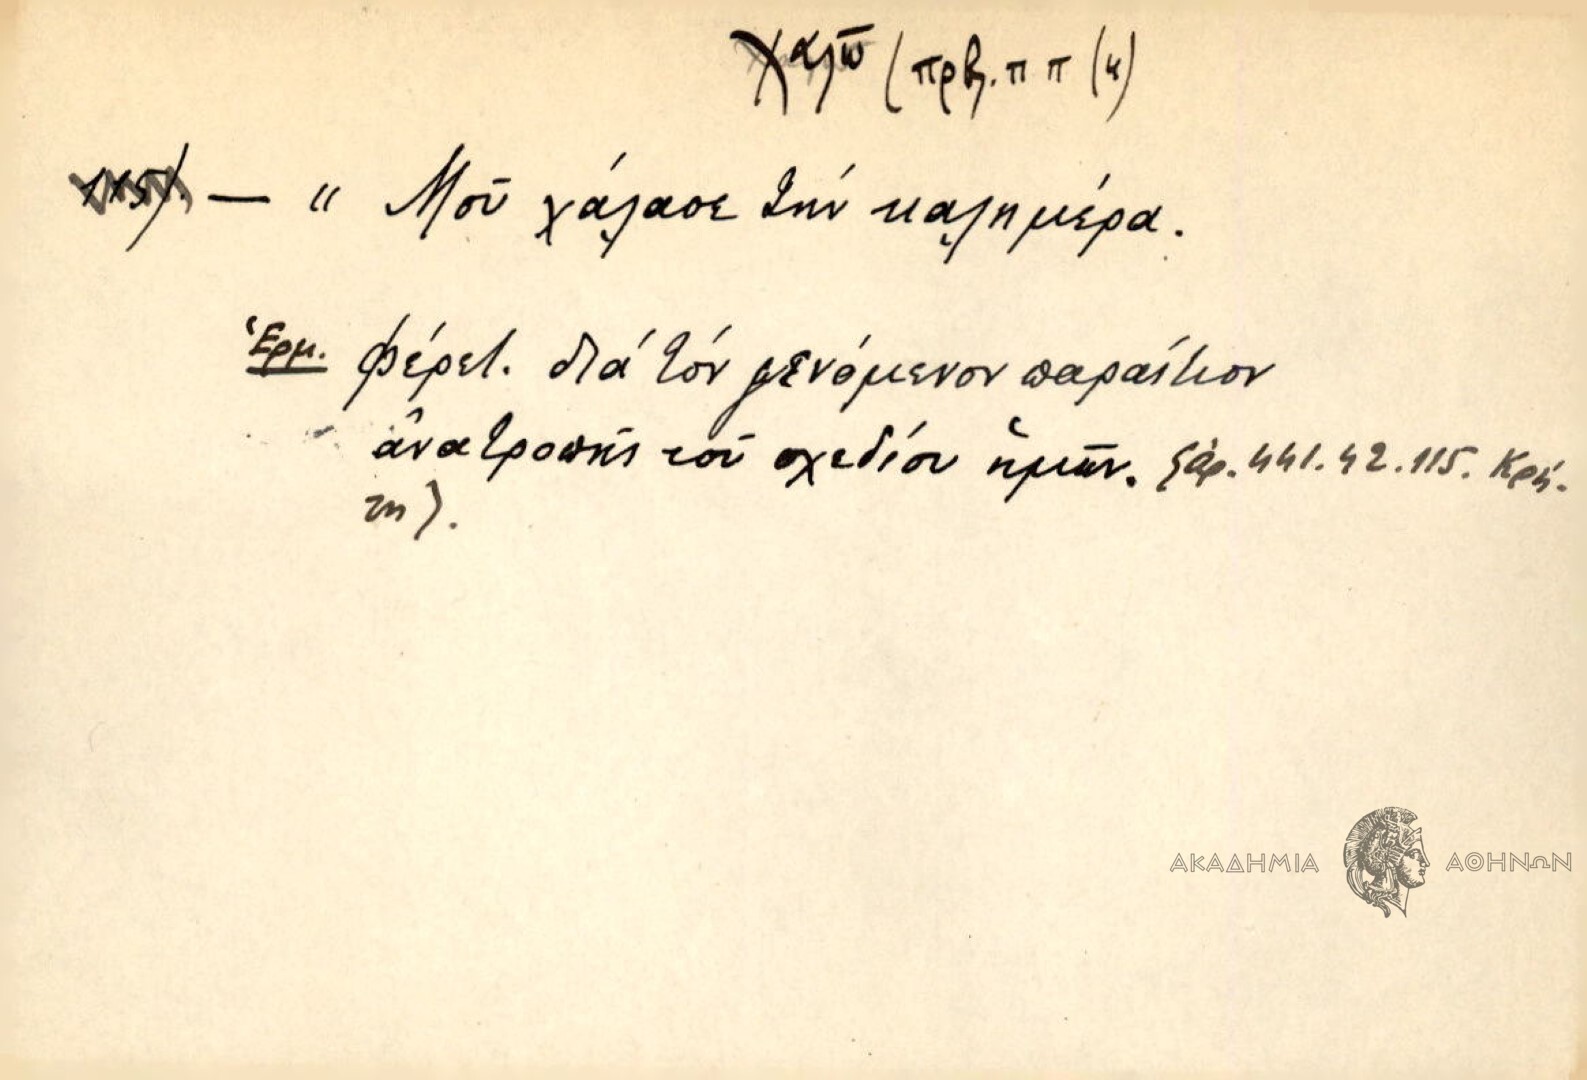 χαλῶ (πρβλ. π π (4)
115/. — " Μοῦ χάλασε τήν καλημέρα.
Ἑρμ. φέρετ. διά τόν γενόμενον παραίτιον
ἀνατροπῆς τοῦ σχεδίου ἡμῶν. ἀρ. 441. 42. 115. Κρή-
τη).
ΑΚΑΔΗΜΙΑ ΑΘΗΝΩΝ